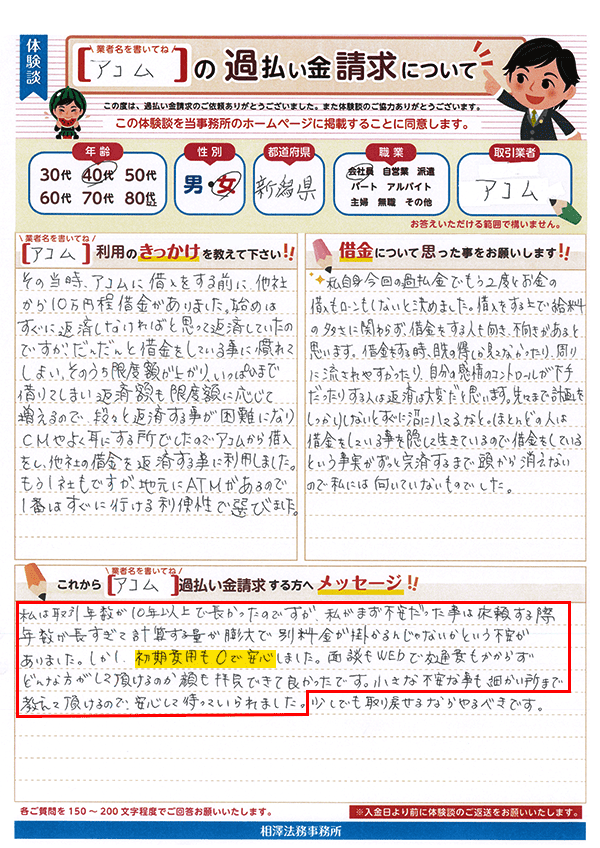 体験談
業者名を書いてね
[アコム]の過払い金請求について
この度は、過払い金請求のご依頼ありがとうございました。また体験談のご協力ありがとうございます。
この体験談を当事務所のホームページに掲載することに同意します。
年齢
30代 40代 50代
60代 70代 80代以上
性別
男・女
都道府県
新潟県
職業
会社員 自営業 派遣
パート アルバイト
主婦 無職 その他
取引業者
アコム
お答えいただける範囲で構いません。
業者名を書いてね
[アコム]利用のきっかけを教えて下さい!!
その当時、アコムに借入をする前に、他社
から10万円程借金がありました。始めは
すぐに返済しなければと思って返済していたの
ですが、だんだんと借金をしている事に慣れて
しまい、そのうち限度額が上がり、いっぱいまで
借りてしまい返済額も限度額に応じて
増えるので、段々と返済する事が困難になり
CMやよく耳にする所でしたのでアコムから借入
をし、他社の借金を返済する事に利用しました。
もう1社もですが、地元にATMがあるので
1番はすぐに行ける利便性で選びました。
借金について思った事をお願いします!!
私自身今回の過払金でもう2度とお金の
借入もローンもしないと決めました。借入をする上で給料
の多さに関わらず、借金をする人も向き、不向きがあると
思います。借金をする時、既の得しか見えなかったり、周り
に流されやすかったり、自分の感情のコントロールが下手
だったりする人は返済は大変だと思います。先々まで計画を
しっかりしないとすぐに沼にハマるなと。ほとんどの人は
借金をしている事を隠して生きているので借金をしている
という事実がずっと完済するまで頭から消えない
ので私には向いていないものでした。
業者名を書いてね
これから[アコム]過払い金請求する方へメッセージ!!
私は取引年数が10年以上で長かったのですが、私がまず不安だった事は依頼する際
年数が長すぎて計算する量が膨大で別料金が掛かるんじゃないかという不安が
ありました。しかし、初期費用も0で安心しました。面談もWEBで交通費もかからず
どんな方がして頂けるのか顔も拝見できて良かったです。小さな不安な事も細かい所まで
教えて頂けるので、安心して待っていられました。少しでも取り戻せるならやるべきです。
各ご質問を150〜200文字程度でご回答お願いいたします。
※入金日より前に体験談のご返送をお願いいたします。
相澤法務事務所